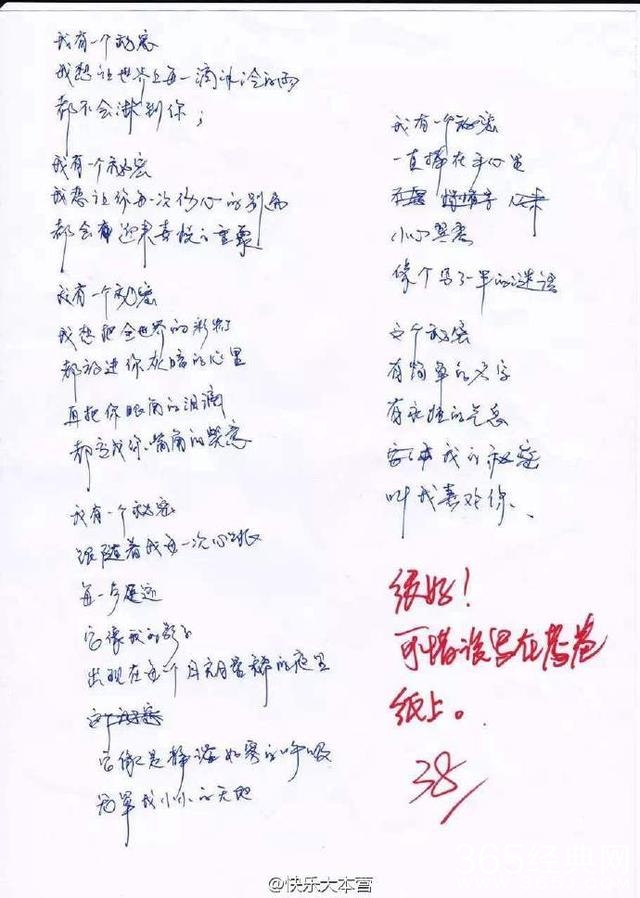 我有一个秘密
我想让世界上每一滴冰冷的雨
都不会淋到你；
我有一个秘密
我想让你每一次伤心的别离
都会有迎来喜悦的重聚
我有一个秘密
我想把全世界的彩虹
都放进你灰暗的心里
再把你眼角的泪滴
都变成你嘴角的笑意
我有一个秘密
跟随着我每一次心跳
每一步足迹
它像我的影子
出现在每一个月明星稀的夜里
这个秘密
它像是静谧如寒的呼吸
笼罩我小小的天地
我有一个秘密
一直捧在手心里
小心翼翼
像个写了一半的谜语
这个秘密
有简单的名字
有永恒的气息
我的秘密
叫我喜欢你、
很好！
可惜没写在答卷
纸上。
38
365经典网
@快乐大本营